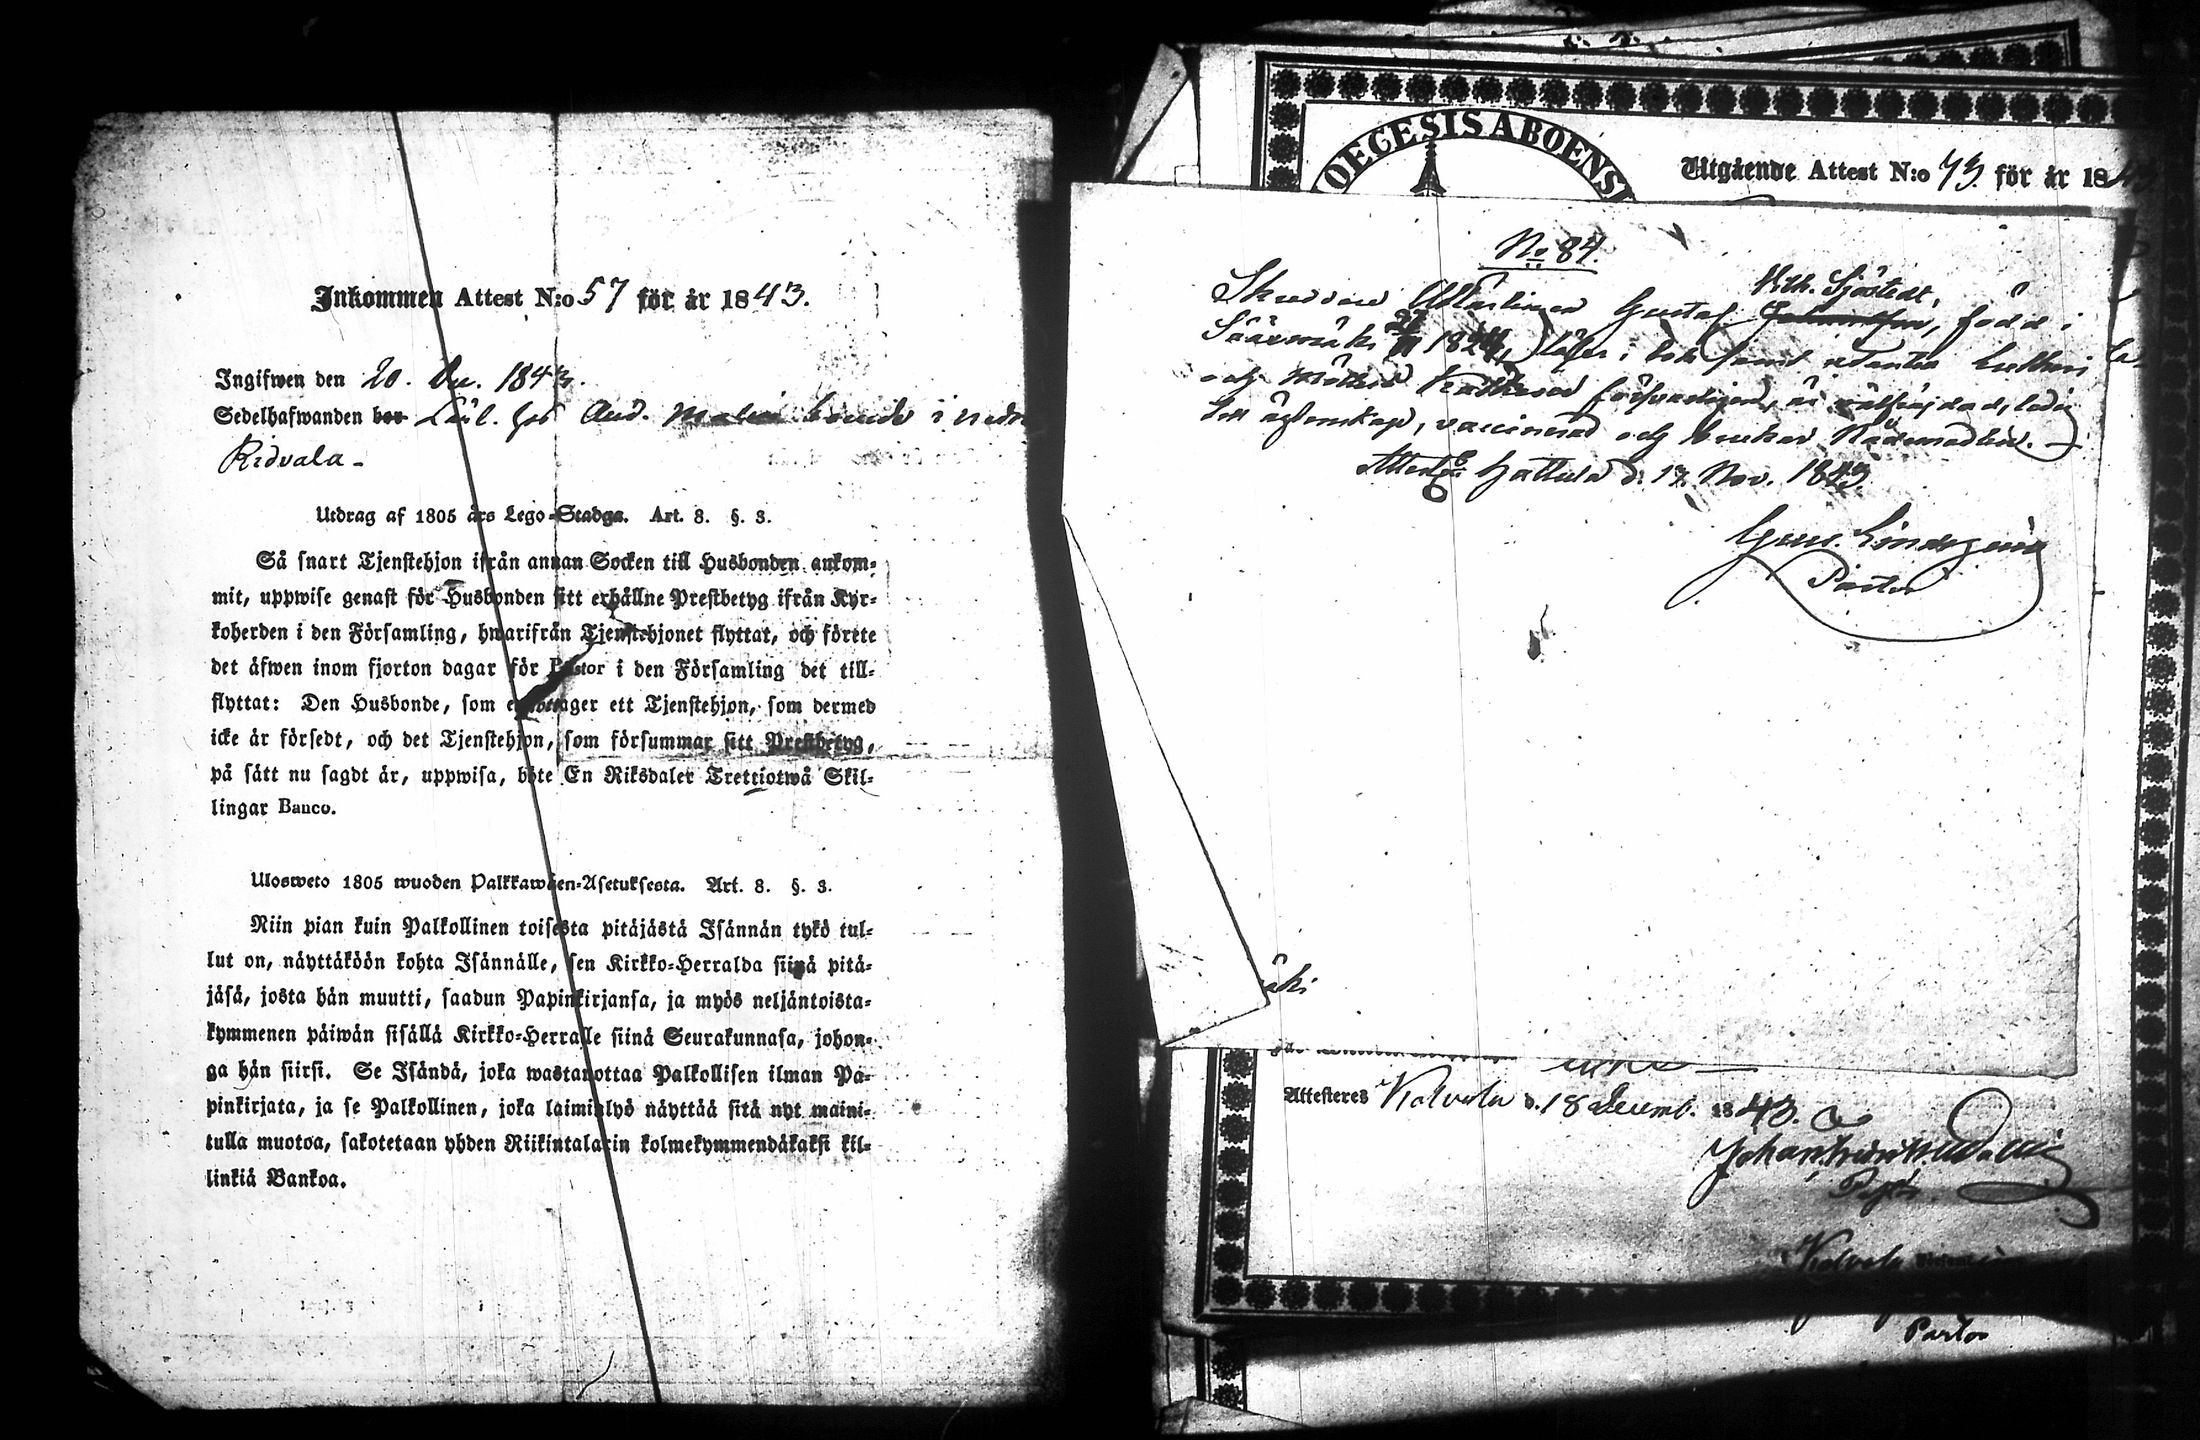 Inkommen Attest N:o 57 för år 1843.
Ingifwen den 20. Dec. 1843.
Sedelhafwanden bor And. boende i nedre
Ridvala
Utdrag af 1805 års Lego-Stadga. Art. 8. §. 3.
Så snart Tjenstehjon ifrån annan Socken till Husbonden ankom-
mit, uppwise genast för Husbonden sitt erhållne Prestbetyg ifrån Kyr-
koherden i den Församling, hwarifrån Tjenstehjonet flyttat, och förete
det äfwen inom fjorton dagar för Pastor i den Församling det till-
flyttat: Den Husbonde, som emottager ett Tjenstehjon, som dermed
icke är försedt, och det Tjenstehjon, som försummar sitt Prestbetyg,
på sätt nu sagdt är, uppwisa, böte En Riksdaler Trettiotwå Skil-
lingar Banco.
Ulosweto 1805 wuoden Palkkawäen-Asetuksesta. Art. 8. §. 3.
Niin pian kuin Palkollinen toisesta pitäjästä Isännän tykö tul-
lut on, näyttäköön kohta Isännälle, sen Kirkko-Herralda siinä pitä-
jäsä, josta hän muutti, saadun Papinkirjansa, ja myös neljäntoista-
kymmenen päiwän sisällä Kirkko-Herralle siinä Seurakunnasa, johon-
ga hän siirsi. Se Isändä, joka wastanottaa Palkollisen ilman Pa-
pinkirjata, ja se Palkollinen, joka laiminlyö näyttää sitä nyt maini-
tulla muotoa, sakotetaan yhden Riikintalarin kolmekymmendäkaksi kil-
linkiä Bankoa.
OECESIS ABOENSI
Utgående Attest N:o 73. för år 184
No 84.
Wilh. Sjöstedt,
Gustaf född i
Sääxmäki 18 läser i bok samt utantill
och försvarligen, är ledig
till äktenskap, vaccinerad och brukar Nådemedlen.
Attest. Hattula d. 17 Nov. 1843.
Pastor
äki
Attesteres Kalvola d. 18 Decemb. 1843.
Pastor
Kalvola
Pastor